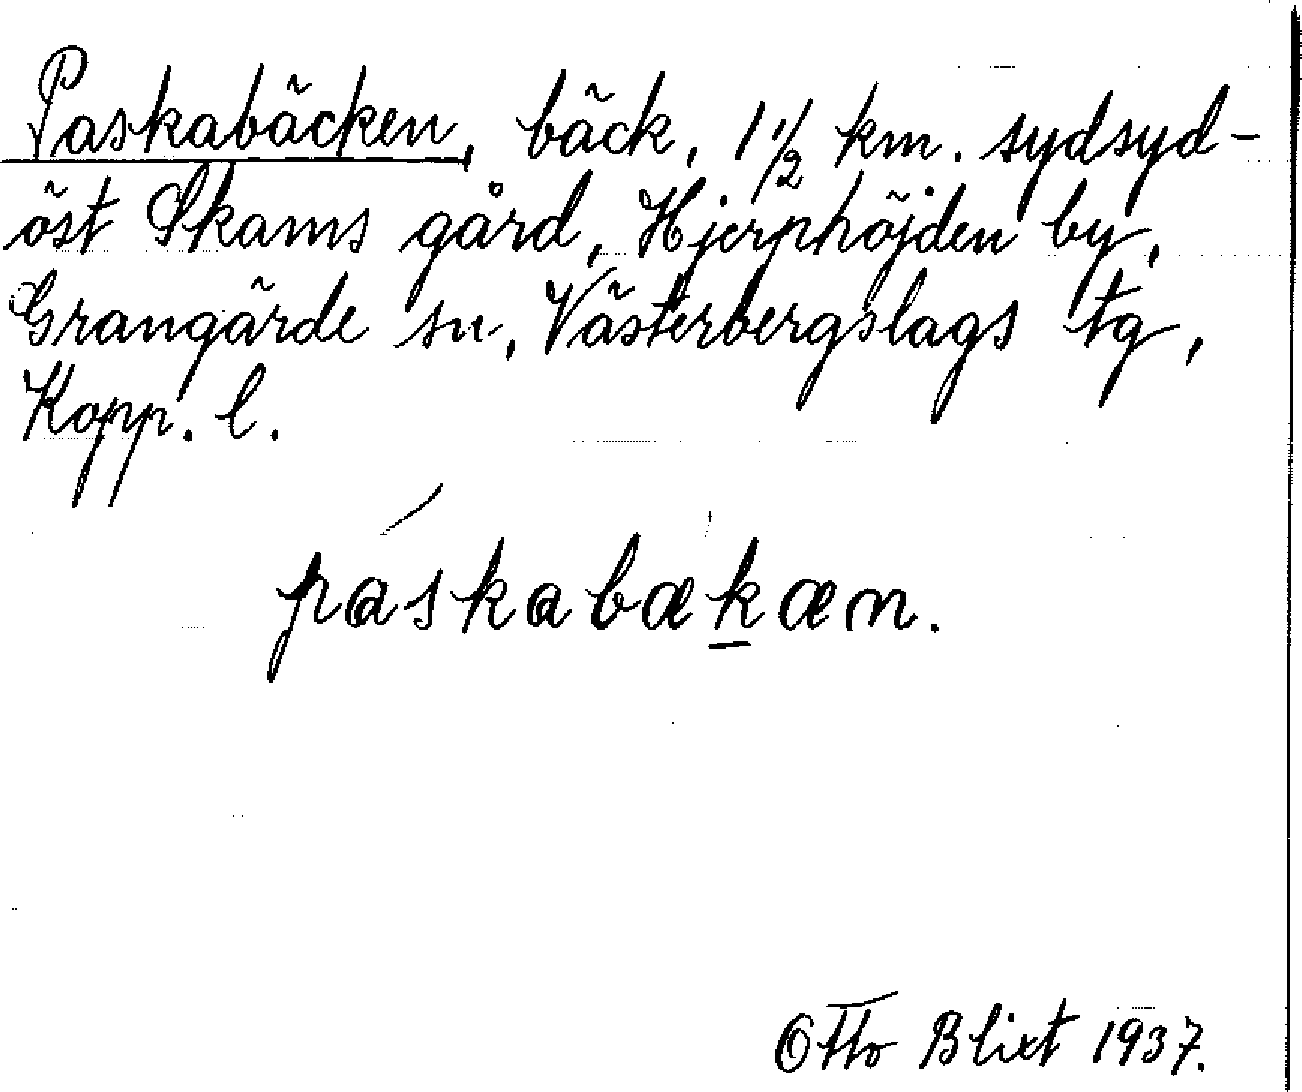 Paskabäcken, bäck, 1 1/2 km. sydsyd-
öst Skams gård, Hjerphöjden by,
Grangärde sn, Västerbergslags tg,
Kopp. l.
páskabækæn.
Otto Blixt 1937.